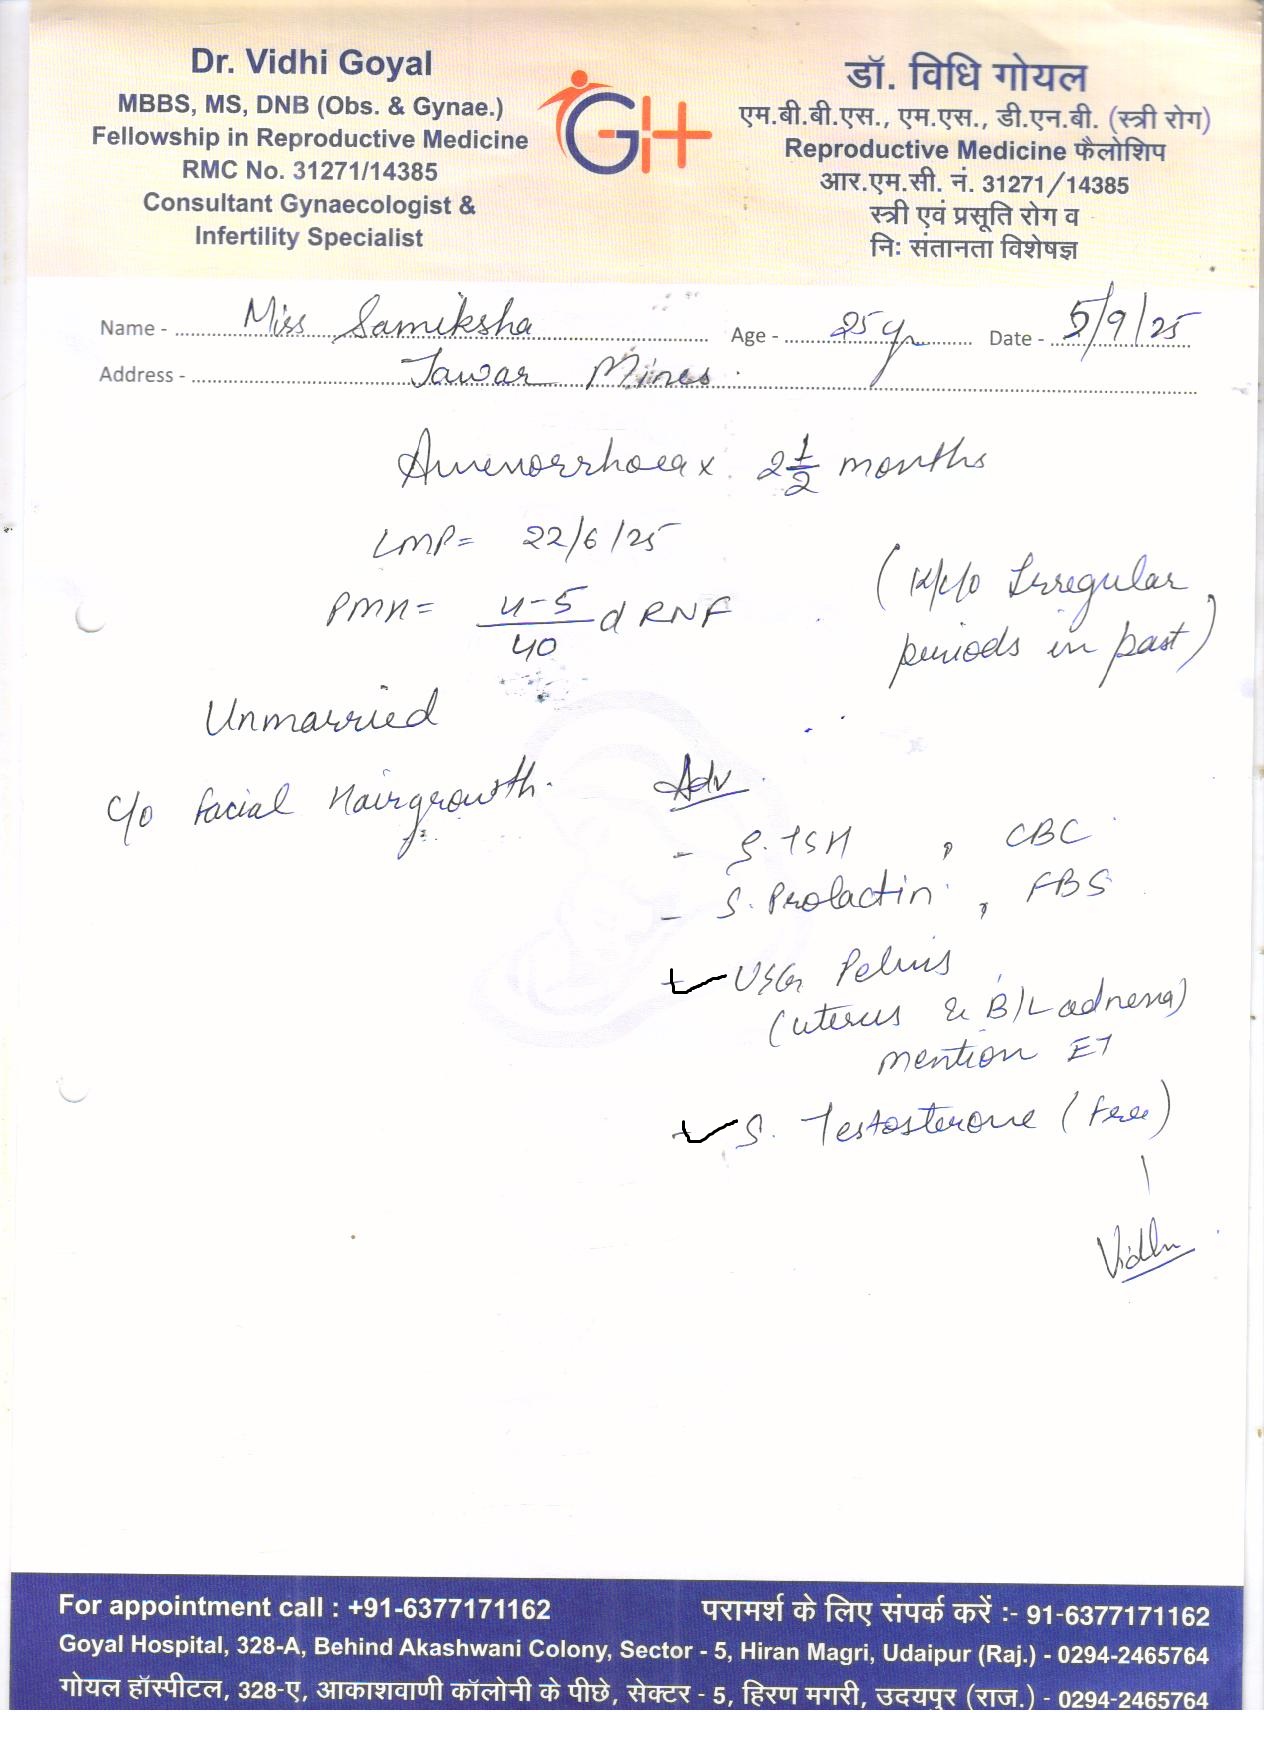 Dr. Vidhi Goyal
MBBS, MS, DNB (Obs. & Gynae.)
Fellowship in Reproductive Medicine
RMC No. 31271/14385
Consultant Gynaecologist &
Infertility Specialist
GH
डॉ. विधि गोयल
एम.बी.बी.एस., एम.एस., डी.एन.बी. (स्त्री रोग)
Reproductive Medicine फैलोशिप
आर.एम.सी. नं. 31271/14385
स्त्री एवं प्रसूति रोग व
निः संतानता विशेषज्ञ
Name - Miss Samiksha Age - 25 yr Date - 5/9/25
Address - Jawar Mines
Amenorrhoea x 2 1/2 months
LMP= 22/6/25
PMH= 4-5/40 d RNF
(K/c/o Irregular
periods in past)
Unmarried
c/o facial Hairgrowth.
Adv
- S. TSH, CBC
- S. Prolactin, FBS
- USG Pelvis
(uterus & B/L adnexa)
mention ET
- S. Testosterone (Free)
Vidhi
For appointment call : +91-6377171162 परामर्श के लिए संपर्क करें :- 91-6377171162
Goyal Hospital, 328-A, Behind Akashwani Colony, Sector - 5, Hiran Magri, Udaipur (Raj.) - 0294-2465764
गोयल हॉस्पीटल, 328-ए, आकाशवाणी कॉलोनी के पीछे, सेक्टर - 5, हिरण मगरी, उदयपुर (राज.) - 0294-2465764